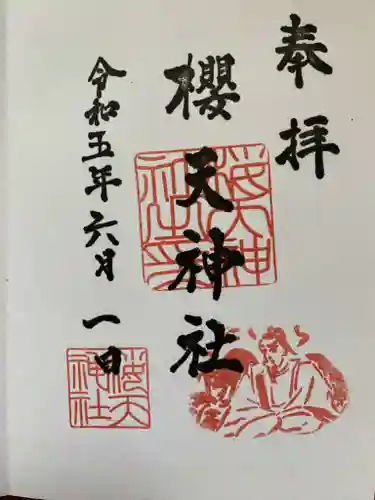 奉拝
櫻天神社
令和五年六月一日
櫻天神社